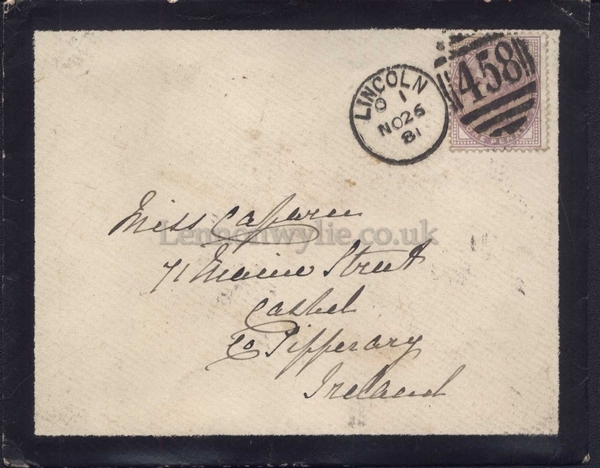 LINCOLN
O 1
NO 26
81
458
Miss
Lennonwylie.co.uk
71 Maine Street
Cashel
Co Tipperary
Ireland